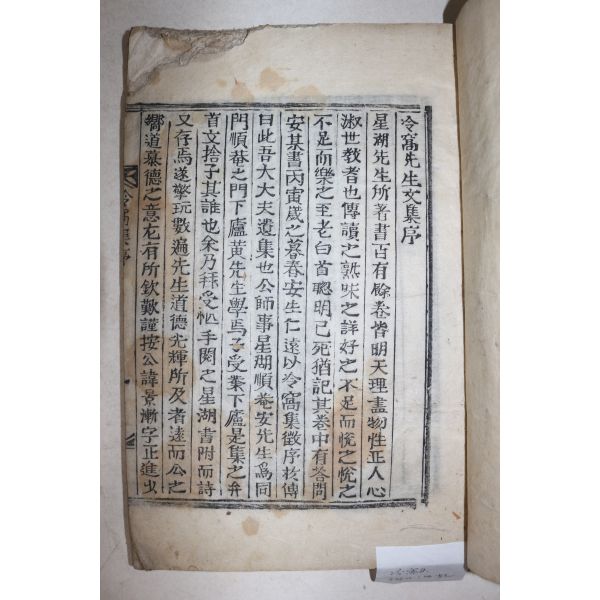 冷窩先生文集序
星湖先生所著書百有餘卷皆明天理盡物性正人心
淑世敎者也傳讀之熟味之詳好之不足而悅之悅之
不足而樂之至老白首聰明已死猶記其卷中有答問
安某書丙寅歲之暮春安生仁遠以冷窩集徵序於傳
曰此吾大大夫遺集也公師事星湖順菴安先生爲同
門順菴之門下廬黃先生學焉子受業下廬是集之弁
首文捨子其誰也余乃拜受忙手閱之星湖書附而詩
又存焉遂擎玩數遍先生道德光輝所及者遠而公之
嚮道慕德之意尤有所欽歎謹按公諱景漸字正進出
冷窩集序